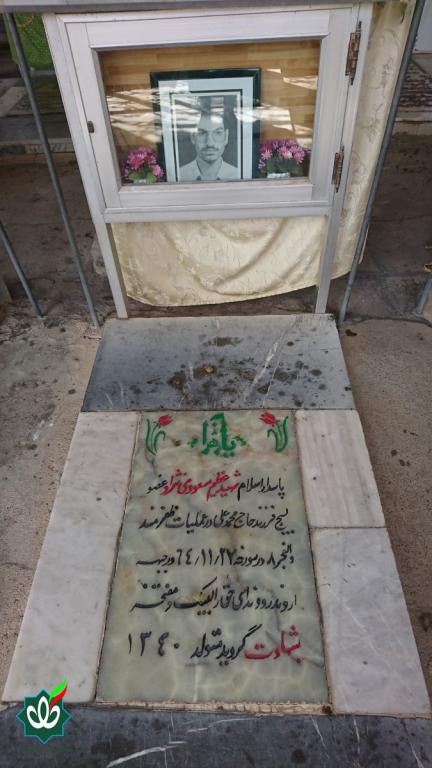 یا زهرا
پاسدار اسلام شهید عظیم مسعودی نژاد عضو
بسیج فرزند حاج محمد علی در عملیات ظفرمند
والفجر ۸ در مورخه ۶۴/۱۱/۲۷ در جبهه
اروندرود ندای حق را لبیک و مفتخر به
شهادت گردید متولد ۱۳۴۰